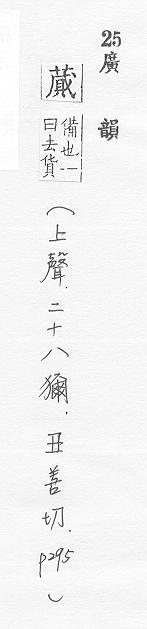 25廣韻
蕆
備也一
曰去貨
(上聲.二十八獮.丑善切.p295)